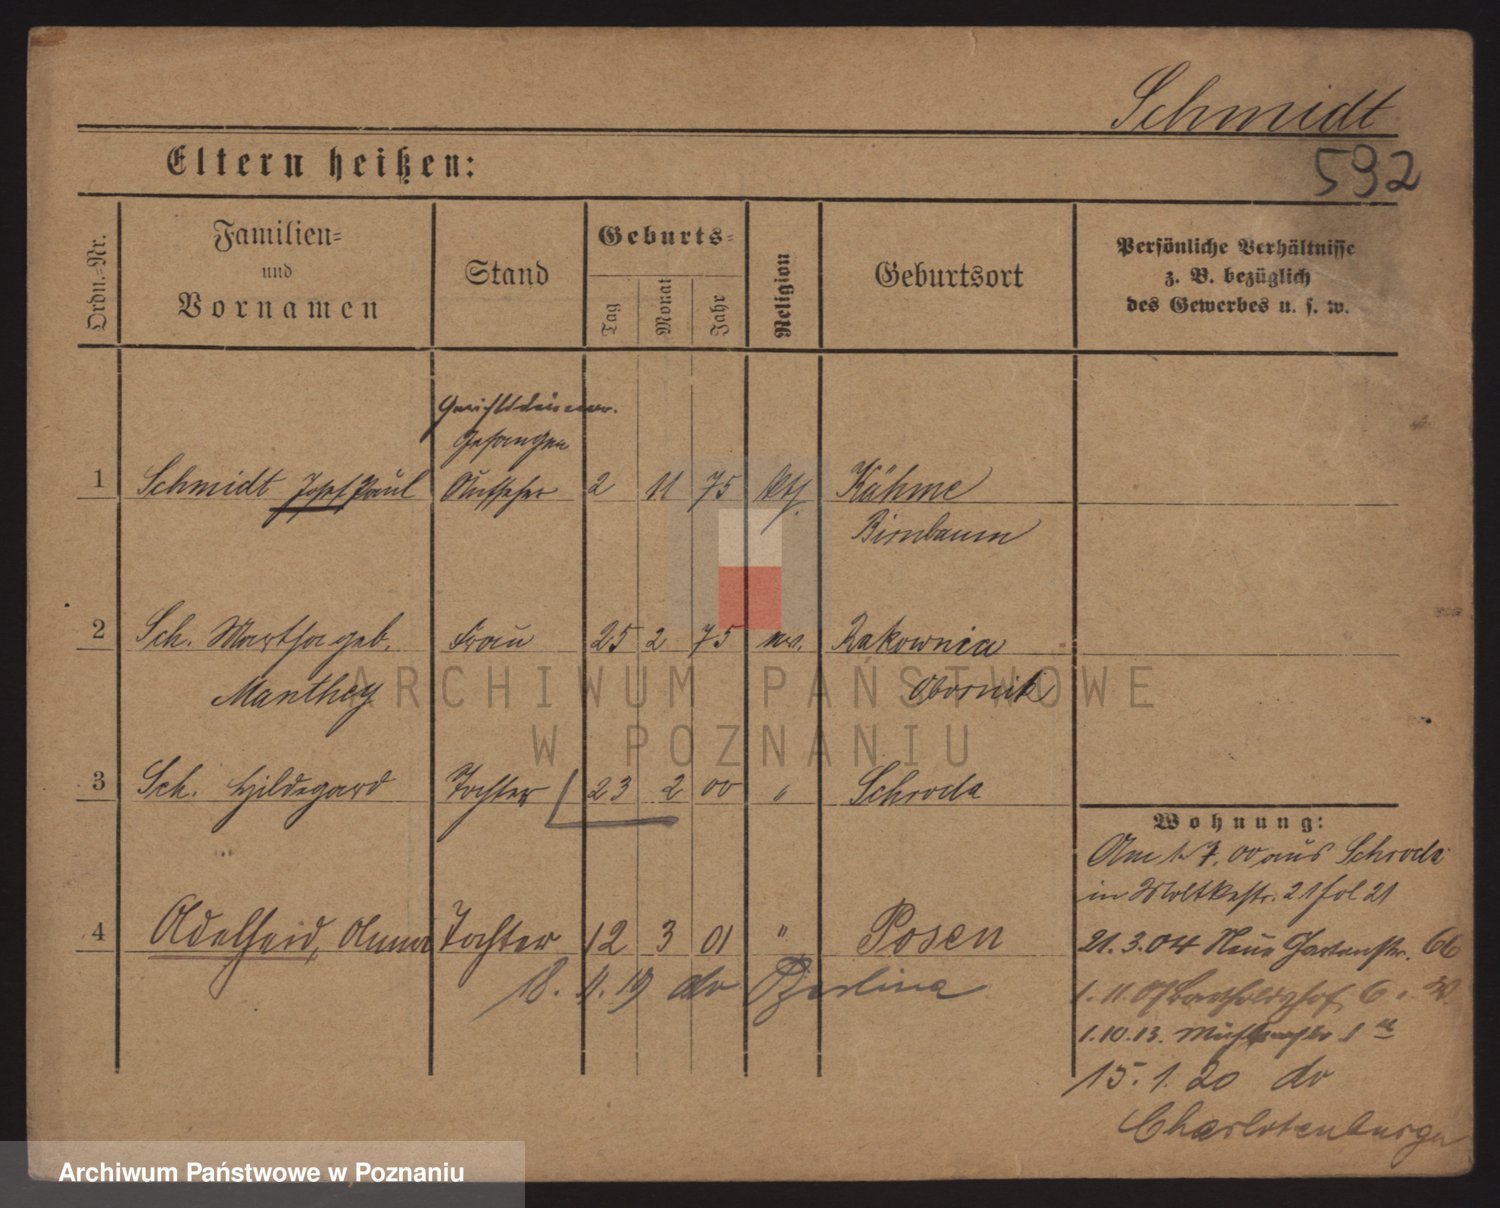 Schmidt
592
Eltern heißen:
Ordn.-Nr.
Familien-
und
Vornamen
Stand
Geburts-
Tag
Monat
Jahr
Religion
Geburtsort
Persönliche Verhältnisse
z. B. bezüglich
des Gewerbes u. s. w.
Gerichtsdiener.
Gefangen
1 Schmidt Josef Paul Aufseher 2 11 75 kth. Kähme
Birnbaum
2 Sch. Martha geb. Frau 25 2 75 ev. Rakownia
Manthey Obornik
3 Sch. Hildegard Tochter 23 2 00 " Schroda
Wohnung:
Am 1. 7. 00 aus Schroda
in Moltkestr. 21 fol 21
4 Adelheid, Anna Tochter 12 3 01 " Posen
21.3.04 Neue Gartenstr. 66
18. 9. 19 do Berlina
1. 11. 07 6
1.10.13.
15. 1. 20 do
Charlotenburga
ARCHIWUM PAŃSTWOWE
W POZNANIU
Archiwum Państwowe w Poznaniu